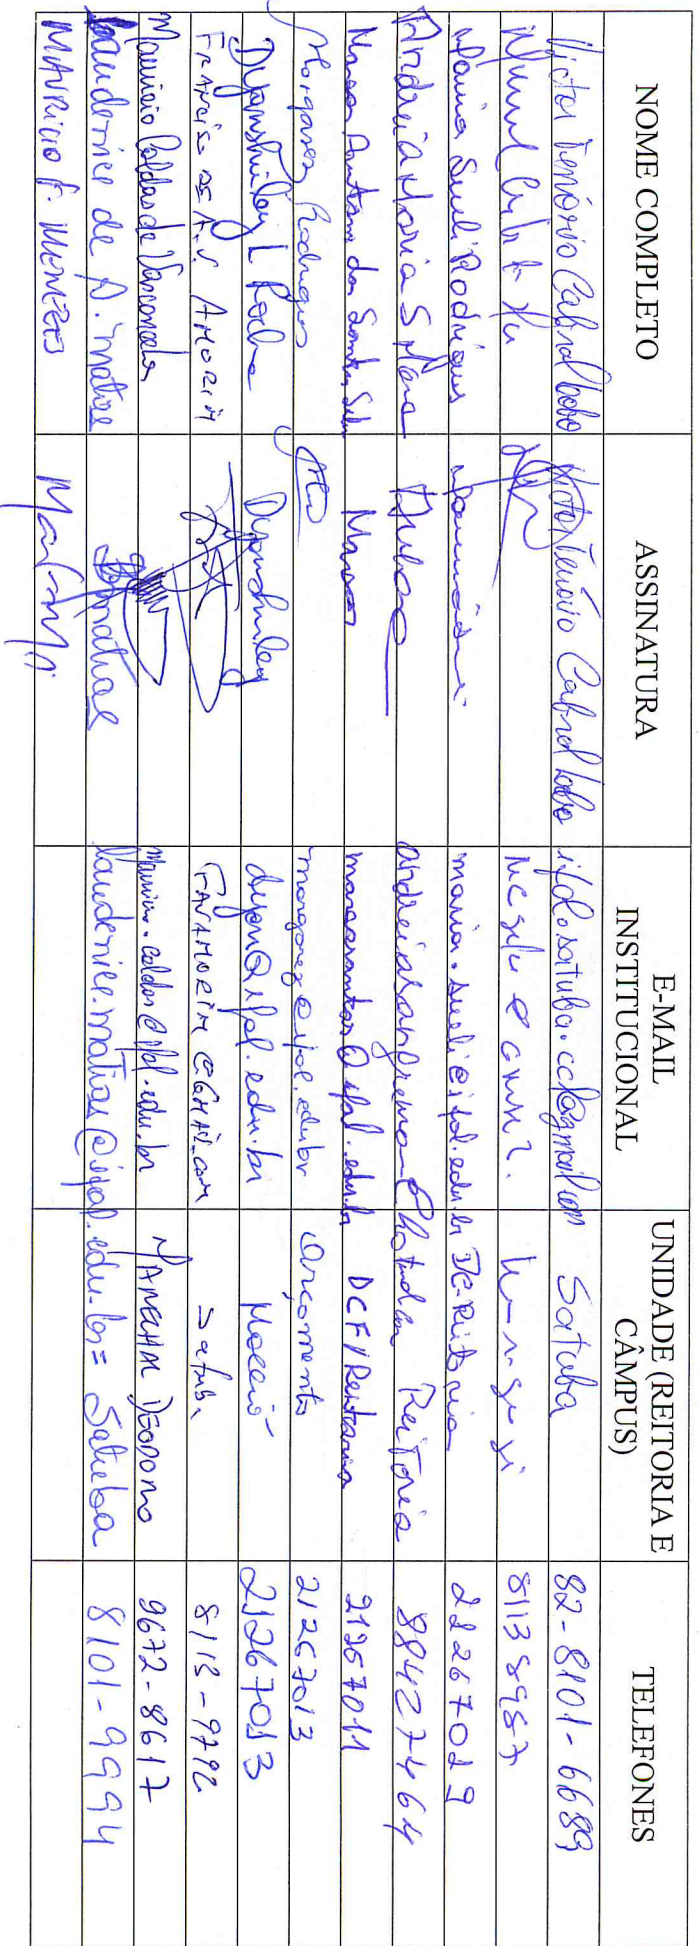 NOME COMPLETO ASSINATURA E-MAIL INSTITUCIONAL UNIDADE (REITORIA E CÂMPUS) TELEFONES
Victor Tenório Cabral Lobo Victor Tenório Cabral Lobo ifal.satuba.ccl@gmail.com Satuba 82-8101-6689
81138957
Maria Sueli Rodrigues maria.sueli@ifal.edu.br DC-Reitoria 21267019
Andreia Maria S Reitoria 88427464
dos Santos Silva @ifal.edu.br DCF/Reitoria 21267011
Morganez Rodrigues morganez@ifal.edu.br Orçamento 21267013
Djonshiley L Rocha Djonshiley djon@ifal.edu.br Maceió 21267013
FRANCISCO DE A.V. AMORIM FAVAMORIM@GMAIL.COM Satuba 8113-9792
Mauricio Caldas de Vasconcelos mauricio.caldas@ifal.edu.br MARECHAL DEODORO 9672-8617
Laudenice de A. Matias Matias laudenice.matias@ifal.edu.br= Satuba 8101-9994
MAURICIO F. MENEZES